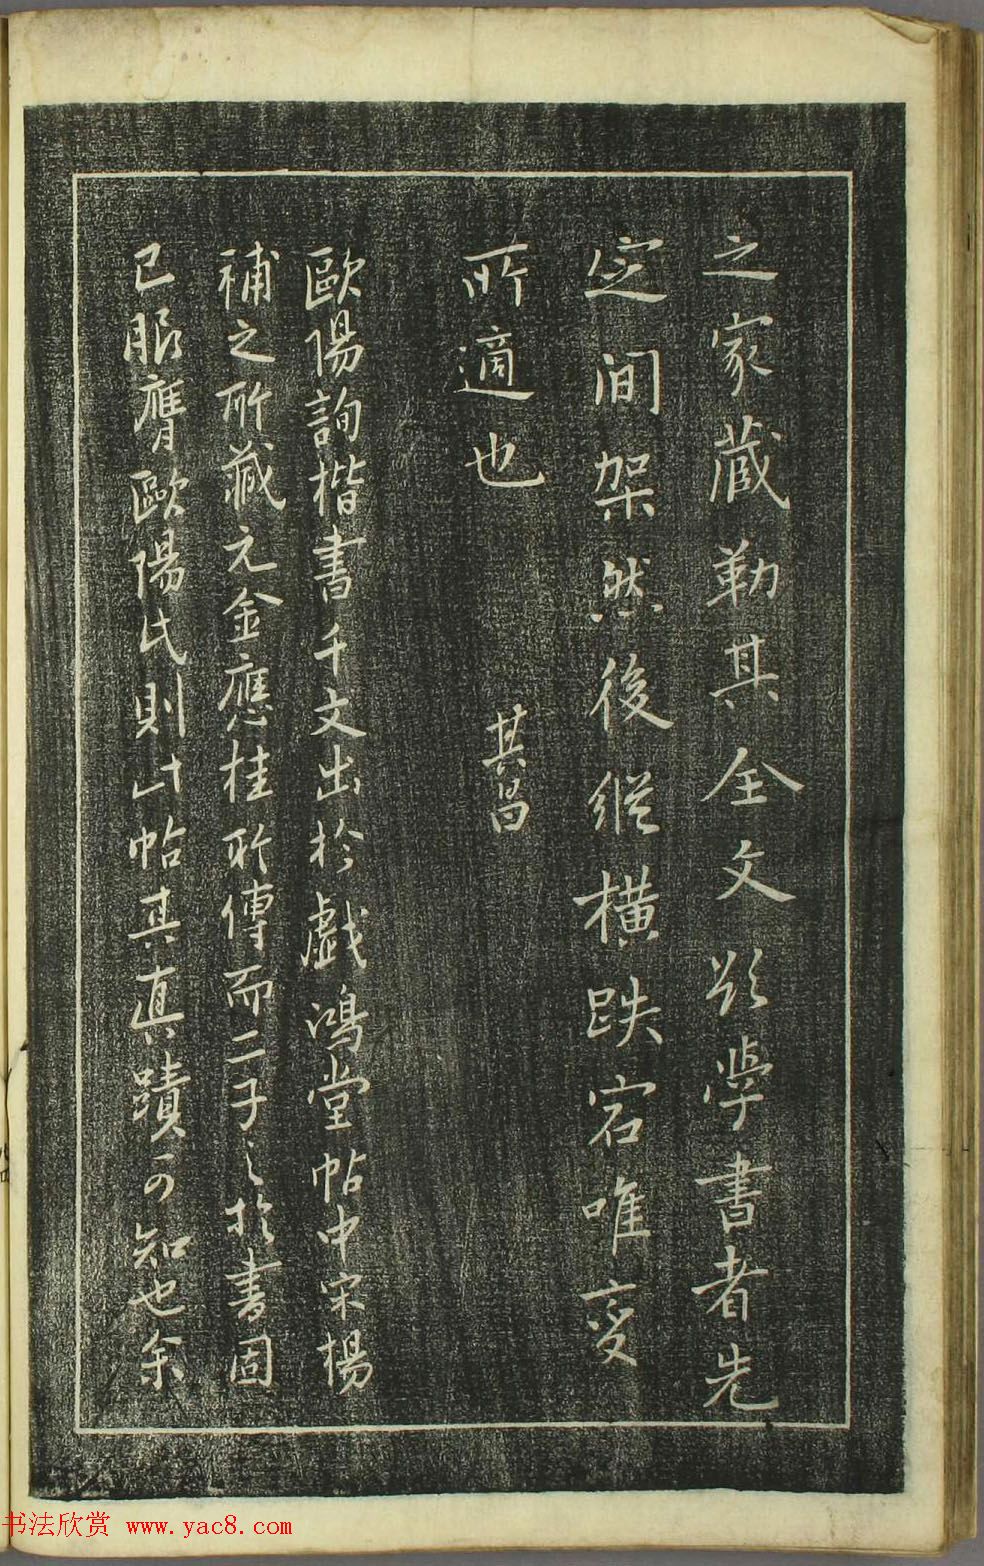 之家藏勒其全文欲學書者先
定間架然後縱橫跌宕唯變
所適也 其昌
歐陽詢楷書千文出於戲鴻堂帖中宋楊
補之所藏元金應桂所傳而二子之於書固
已服膺歐陽氏則此帖其真蹟可知也余
书法欣赏 www.yac8.com